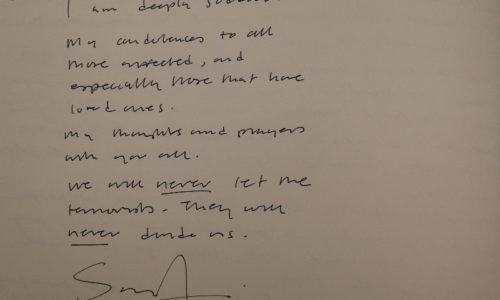 I am deeply
My condolences to all
those affected, and
especially those that have
loved ones.
My thoughts and prayers
with you all.
We will never let the
terrorists - They will
never divide us.